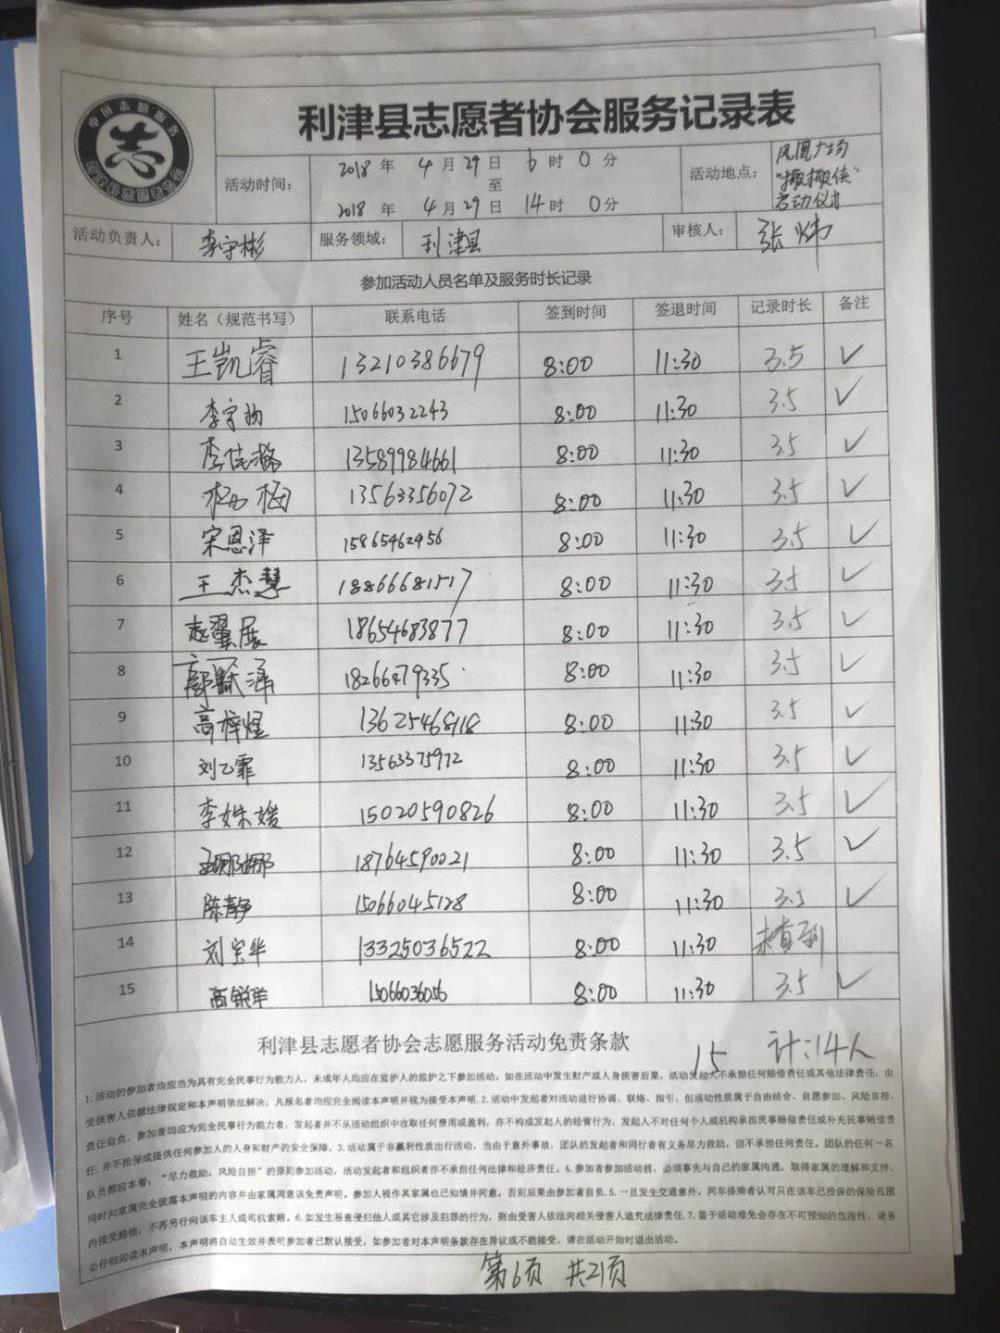 利津县志愿者协会服务记录表
活动时间： 2018 年 4 月 29 日 6 时 0 分
至
2018 年 4 月 29 日 14 时 0 分
活动地点： 凤凰广场
启动仪式
活动负责人： 李守彬 服务领域： 利津县 审核人： 张炜
参加活动人员名单及服务时长记录
序号 姓名（规范书写） 联系电话 签到时间 签退时间 记录时长 备注
1 王凯睿 13210386679 8:00 11:30 3.5 ✓
2 15066032243 8:00 11:30 3.5 ✓
3 李佳璐 13589984661 8:00 11:30 3.5 ✓
4 13563356072 8:00 11:30 3.5 ✓
5 宋恩泽 15865462956 8:00 11:30 3.5 ✓
6 王杰慧 18866681517 8:00 11:30 3.5 ✓
7 18654683877 8:00 11:30 3.5 ✓
8 18266479335 8:00 11:30 3.5 ✓
9 高梓煜 13625468118 8:00 11:30 3.5 ✓
10 刘乙霏 13563375972 8:00 11:30 3.5 ✓
11 李姝媛 15020590826 8:00 11:30 3.5 ✓
12 18764590021 8:00 11:30 3.5 ✓
13 陈静 15066045128 8:00 11:30 3.5 ✓
14 刘宝华 13325036522 8:00 11:30 未查到
15 高锐洋 15066036056 8:00 11:30 3.5 ✓
利津县志愿者协会志愿服务活动免责条款 15 计：14人
1.活动的参加者均应当为具有完全民事行为能力人，未成年人均应在监护人的监护之下参加活动，如在活动中发生财产或人身损害后果，活动发起人不承担任何赔偿责任或其他法律责任，由
受损害人依据法律规定和本声明依法解决；凡报名者均应完全阅读本声明并视为接受本声明.2.活动中发起者对活动进行协调、联络、指引，但活动性质属于自由结合、自愿参加、风险自担、
责任自负。参加者均应为完全民事行为能力者，发起者并不从活动组织中收取任何费用或盈利，亦不构成发起人的经营行为，发起人不对任何个人或机构承担民事赔偿责任或补充民事赔偿责
任.并不担保或提供任何参加人的人身和财产的安全保障。3.活动属于非赢利性质出行活动，当由于意外事故，团队的发起者和同行者有义务尽力救助，但不承担任何责任。团队的任何一名
队员都应本着：“尽力救助，风险自担”的原则参加活动，活动发起者和组织者亦不承担任何法律和经济责任。4.参加者参加活动前，必须事先与自己的家属沟通，取得家属的理解和支持，
同时向家属完全披露本声明的内容并由家属同意该免责声明，参加人视作其家属也已知情并同意，否则后果由参加者自负.5.一旦发生交通意外，同车搭乘者认可只在该车已投保的保险范围
内接受赔偿，不再另行向该车主人或司机索赔。6.如发生恶意侵犯他人或其它涉及犯罪的行为，则由受害人依法向相关侵害人追究法律责任.7.鉴于活动难免会存在不可预知的危险性，请务
必仔细阅读本声明，本声明将自动生效并表明参加者已默认接受，如参加者对本声明条款存在异议或不能接受，请在活动开始时退出活动。
第6页 共21页